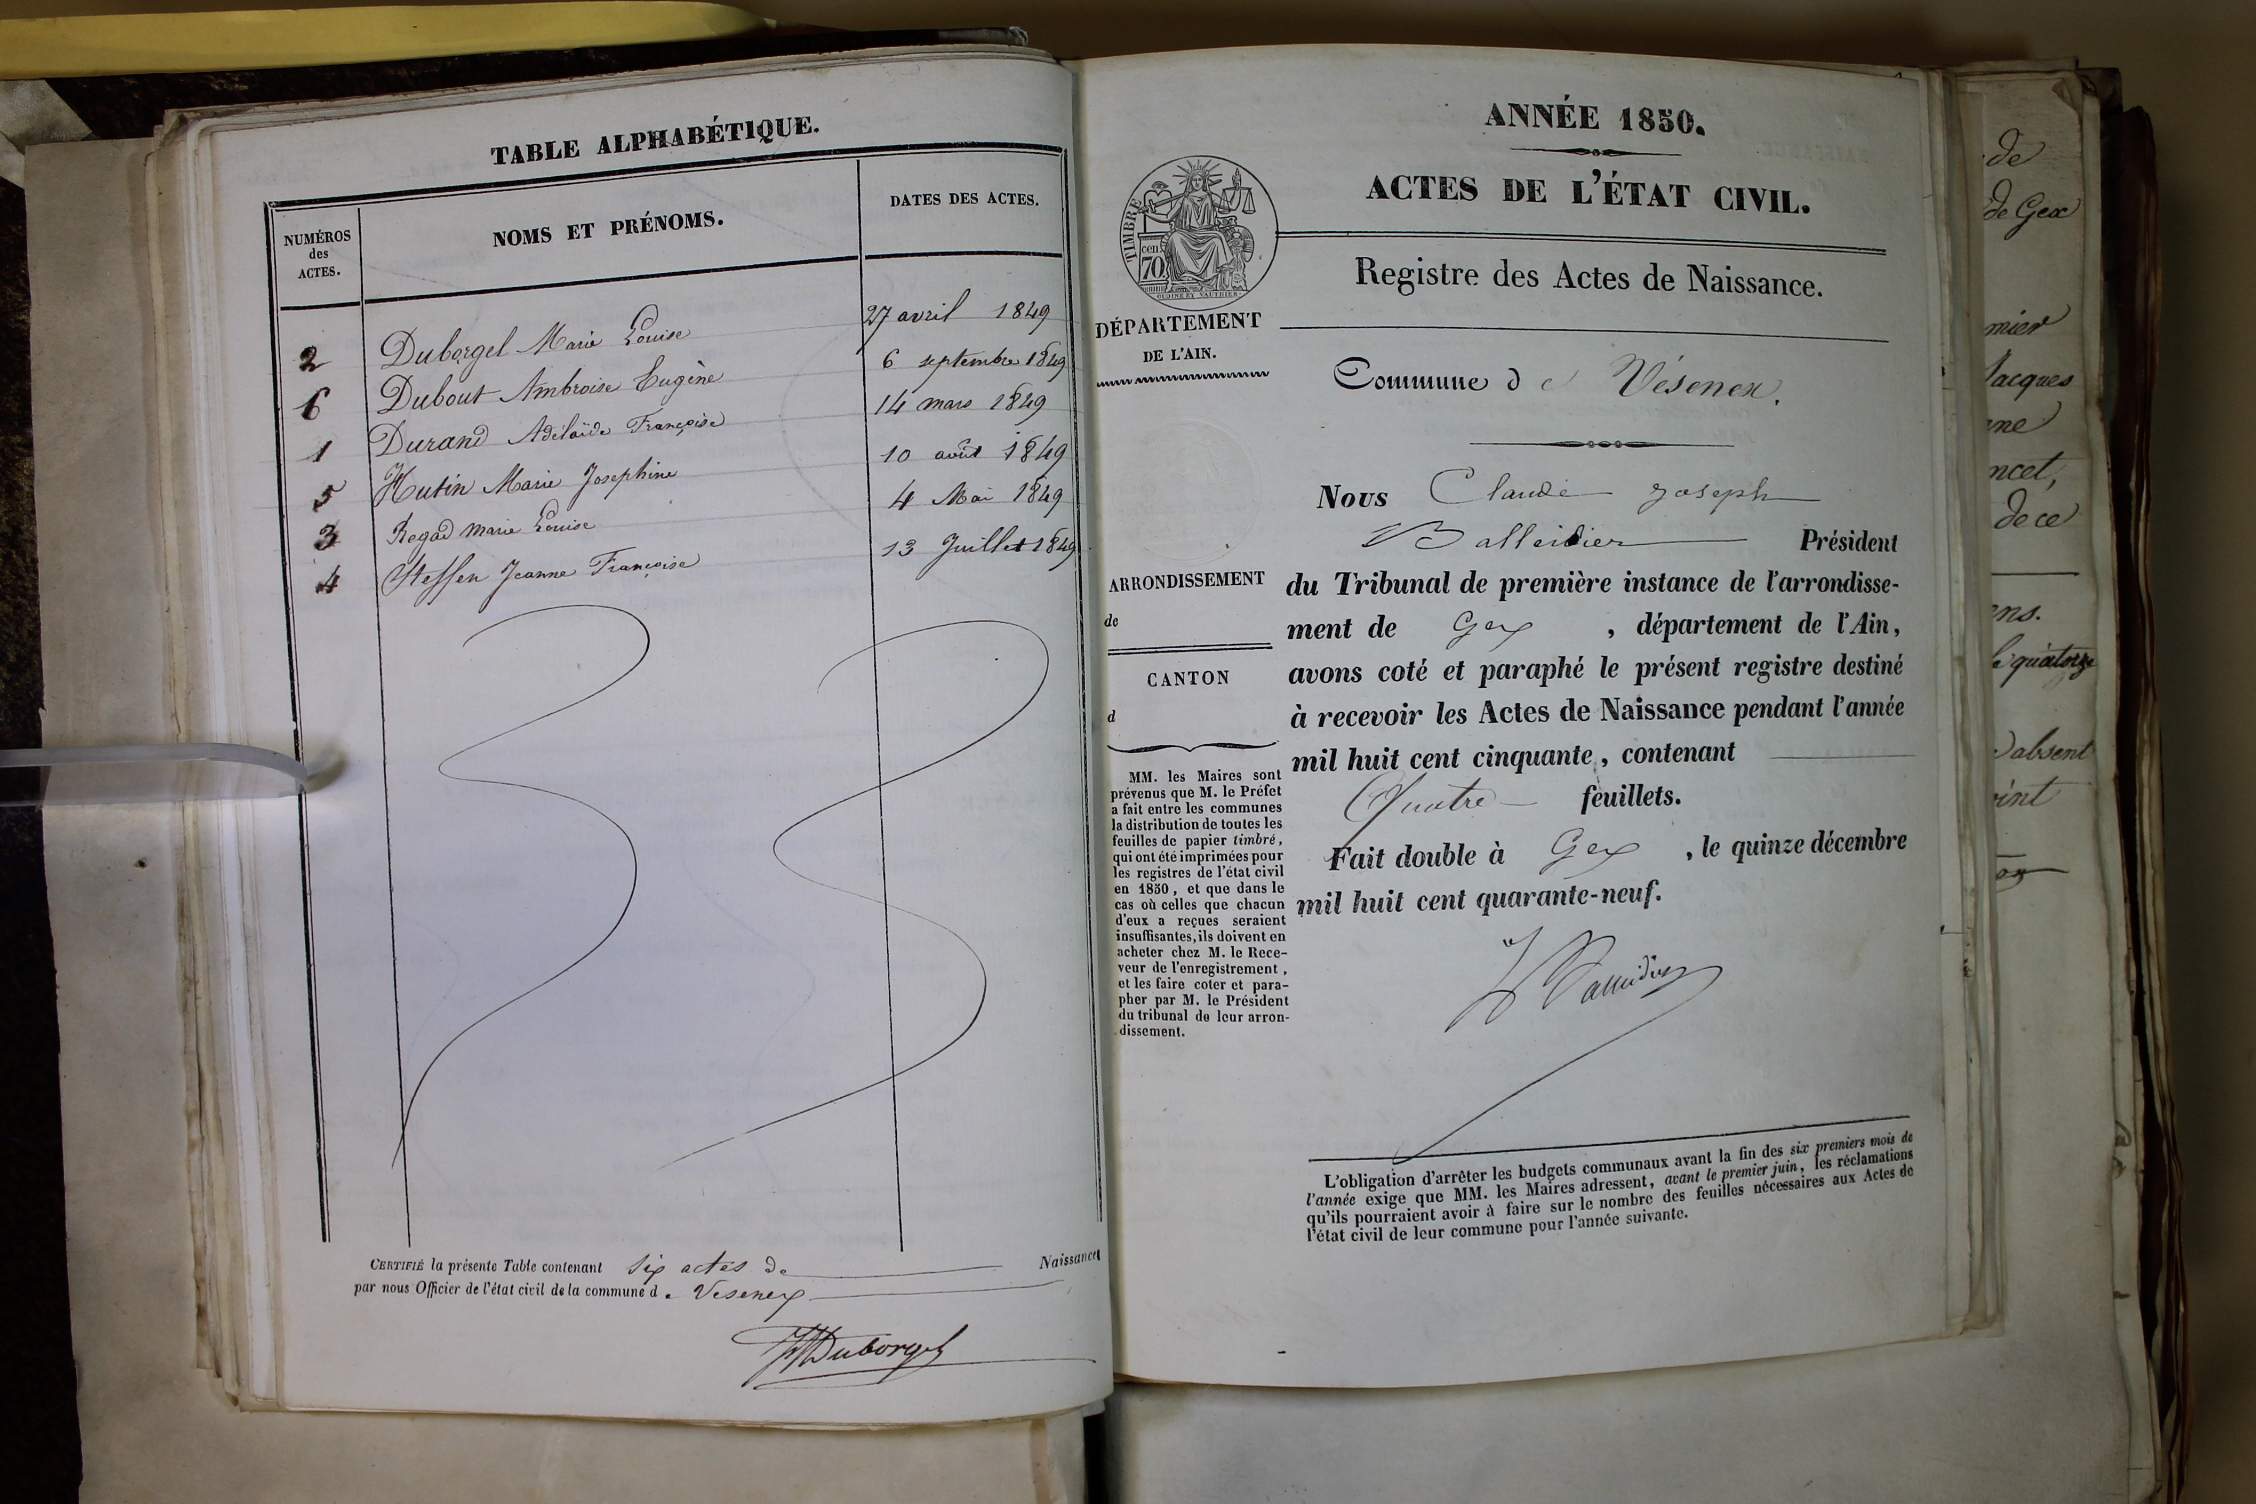 TABLE ALPHABÉTIQUE.
NUMÉROS des ACTES.
NOMS ET PRÉNOMS.
DATES DES ACTES.
2 Duborgel Marie Louise 27 avril 1849
6 Dubout Ambroise Eugène 6 septembre 1849
1 Durand Adélaïde Françoise 14 mars 1849
5 Hutin Marie Josephine 10 août 1849
3 Regad Marie Louise 4 Mai 1849
4 Steffen Jeanne Françoise 13 Juillet 1849
CERTIFIÉ la présente Table contenant six actes de Naissances
par nous Officier de l'état civil de la commune d e Vesenex
Duborgel
ANNÉE 1850.
ACTES DE L'ÉTAT CIVIL.
TIMBRE
70 cen
Registre des Actes de Naissance.
DÉPARTEMENT
DE L'AIN.
Commune d e Vésenex.
Nous Claude Joseph
Balleidier Président
du Tribunal de première instance de l'arrondisse-
ment de Gex , département de l'Ain,
avons coté et paraphé le présent registre destiné
à recevoir les Actes de Naissance pendant l'année
mil huit cent cinquante, contenant
Quatre feuillets.
Fait double à Gex , le quinze décembre
mil huit cent quarante-neuf.
Balleidier
ARRONDISSEMENT
de
CANTON
d
MM. les Maires sont
prévenus que M. le Préfet
a fait entre les communes
la distribution de toutes les
feuilles de papier timbré,
qui ont été imprimées pour
les registres de l'état civil
en 1850, et que dans le
cas où celles que chacun
d'eux a reçues seraient
insuffisantes, ils doivent en
acheter chez M. le Rece-
veur de l'enregistrement,
et les faire coter et para-
pher par M. le Président
du tribunal de leur arron-
dissement.
L'obligation d'arrêter les budgets communaux avant la fin des six premiers mois de
l'année exige que MM. les Maires adressent, avant le premier juin, les réclamations
qu'ils pourraient avoir à faire sur le nombre des feuilles nécessaires aux Actes de
l'état civil de leur commune pour l'année suivante.
de
de Gex
mier
Jacques
ncet,
de ce
ens.
quatorze
absent